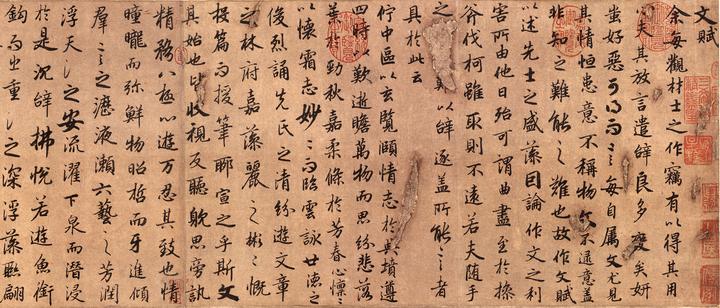 文賦
余每觀材士之作竊有以得其用
心夫其放言遣辭良多變矣妍
蚩好惡可得而言每自属文尤見
其情恒患意不稱物文不逮意盖
非知之難能之難也故作文賦
以述先士之盛藻因論作文之利
害所由他日殆可謂曲盡至於操
斧伐柯雖取則不遠若夫随手
之難以辭逐盖所能言者
具於此云
佇中區以玄覽頤情志於典墳遵
四時以歎逝瞻萬物而思紛悲落
葉於勁秋嘉柔條於芳春心懍懍
以懷霜志妙妙而臨雲詠世德之
俊烈誦先民之清紛遊文章
之林府嘉藻麗之彬彬慨
投篇而援筆聊宣之乎斯文
其始也皆收視反聽耽思旁訊
精騖八極心遊万忍其致也情
曈曨而弥鮮物昭晢而互進傾
群言之瀝液漱六藝之芳潤
浮天淵之安流濯下泉而潛浸
於是沉辭拂悅若遊魚銜
鈎而出重淵之深浮藻聯翩